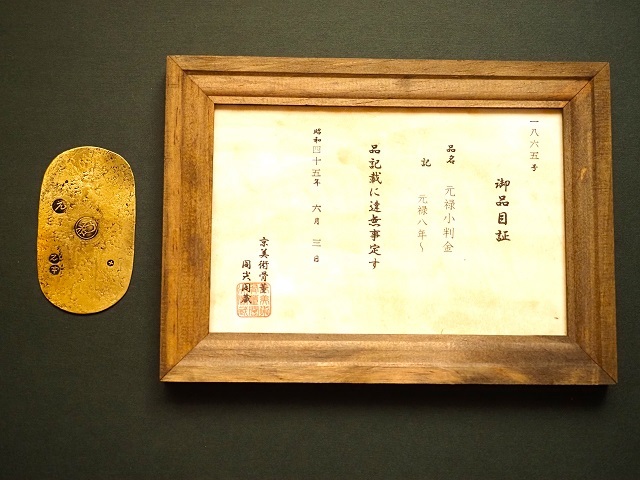 一八六五号
御品目証
品名 元禄小判金
記 元禄八年〜
品記載に違無事定す
昭和四十五年 六月 三日
京美術骨董
元